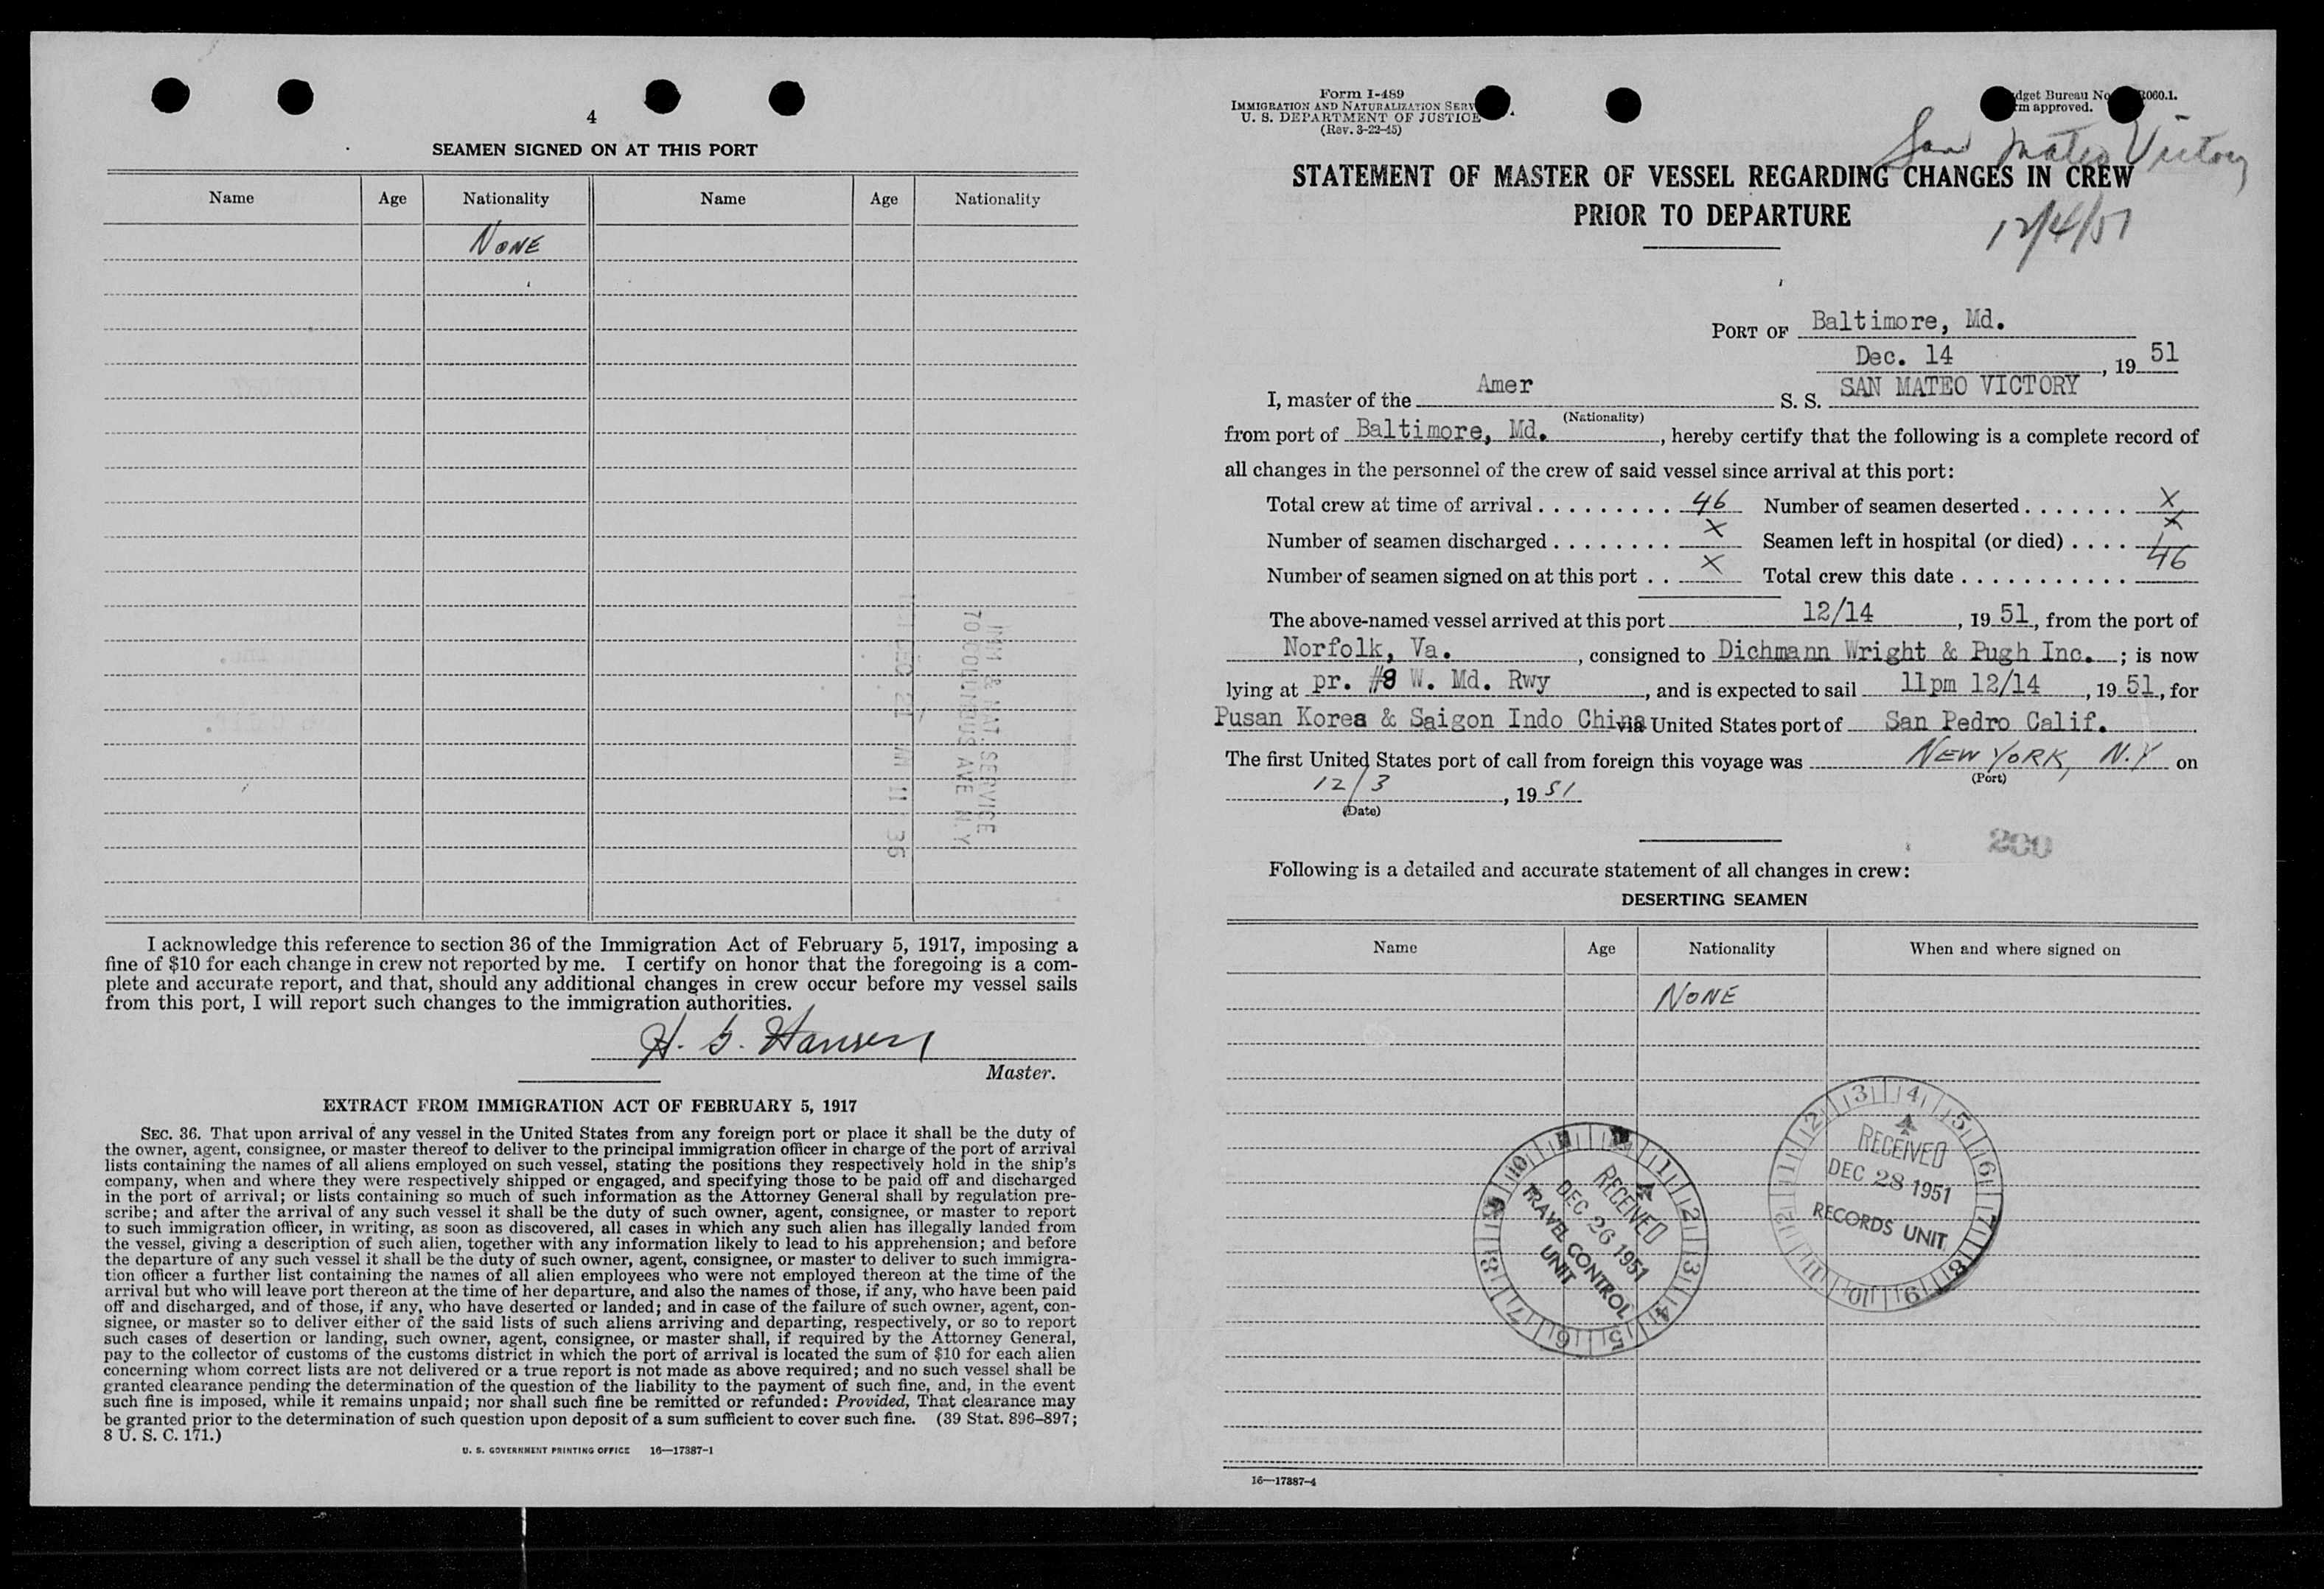 4
SEAMEN SIGNED ON AT THIS PORT
Name Age Nationality Name Age Nationality
NONE
IMM & NAT. SERVICE
70 COLUMBUS AVE N.Y
DEC 21 11 36
I acknowledge this reference to section 36 of the Immigration Act of February 5, 1917, imposing a
fine of $10 for each change in crew not reported by me. I certify on honor that the foregoing is a com-
plete and accurate report, and that, should any additional changes in crew occur before my vessel sails
from this port, I will report such changes to the immigration authorities.
H. G. Hansen
Master.
EXTRACT FROM IMMIGRATION ACT OF FEBRUARY 5, 1917
SEC. 36. That upon arrival of any vessel in the United States from any foreign port or place it shall be the duty of
the owner, agent, consignee, or master thereof to deliver to the principal immigration officer in charge of the port of arrival
lists containing the names of all aliens employed on such vessel, stating the positions they respectively hold in the ship's
company, when and where they were respectively shipped or engaged, and specifying those to be paid off and discharged
in the port of arrival; or lists containing so much of such information as the Attorney General shall by regulation pre-
scribe; and after the arrival of any such vessel it shall be the duty of such owner, agent, consignee, or master to report
to such immigration officer, in writing, as soon as discovered, all cases in which any such alien has illegally landed from
the vessel, giving a description of such alien, together with any information likely to lead to his apprehension; and before
the departure of any such vessel it shall be the duty of such owner, agent, consignee, or master to deliver to such immigra-
tion officer a further list containing the names of all alien employees who were not employed thereon at the time of the
arrival but who will leave port thereon at the time of her departure, and also the names of those, if any, who have been paid
off and discharged, and of those, if any, who have deserted or landed; and in case of the failure of such owner, agent, con-
signee, or master so to deliver either of the said lists of such aliens arriving and departing, respectively, or so to report
such cases of desertion or landing, such owner, agent, consignee, or master shall, if required by the Attorney General,
pay to the collector of customs of the customs district in which the port of arrival is located the sum of $10 for each alien
concerning whom correct lists are not delivered or a true report is not made as above required; and no such vessel shall be
granted clearance pending the determination of the question of the liability to the payment of such fine, and, in the event
such fine is imposed, while it remains unpaid; nor shall such fine be remitted or refunded: Provided, That clearance may
be granted prior to the determination of such question upon deposit of a sum sufficient to cover such fine. (39 Stat. 896–897;
8 U. S. C. 171.)
U. S. GOVERNMENT PRINTING OFFICE 16—17387-1
Form I-489
IMMIGRATION AND NATURALIZATION SERV
U. S. DEPARTMENT OF JUSTICE
(Rev. 3-22-45)
dget Bureau No. R060.1.
rm approved.
San Mateo Victory
STATEMENT OF MASTER OF VESSEL REGARDING CHANGES IN CREW
PRIOR TO DEPARTURE
12/4/51
PORT OF Baltimore, Md.
Dec. 14, 19 51
I, master of the Amer S. S. SAN MATEO VICTORY
(Nationality)
from port of Baltimore, Md., hereby certify that the following is a complete record of
all changes in the personnel of the crew of said vessel since arrival at this port:
Total crew at time of arrival . . . . . . . . . . 46 Number of seamen deserted . . . . . . . X
Number of seamen discharged . . . . . . . . X Seamen left in hospital (or died) . . . . X
Number of seamen signed on at this port . . X Total crew this date . . . . . . . . . . . . 46
The above-named vessel arrived at this port 12/14, 19 51, from the port of
Norfolk, Va., consigned to Dichmann Wright & Pugh Inc.; is now
lying at pr. #8 W. Md. Rwy, and is expected to sail 11pm 12/14, 19 51, for
Pusan Korea & Saigon Indo China via United States port of San Pedro Calif.
The first United States port of call from foreign this voyage was NEW YORK, N.Y on
(Port)
12/3, 19 51
(Date)
200
Following is a detailed and accurate statement of all changes in crew:
DESERTING SEAMEN
Name Age Nationality When and where signed on
NONE
RECEIVED
DEC 26 1951
TRAVEL CONTROL
UNIT
1 2 3 4 5 6 7 8 9 10
RECEIVED
DEC 28 1951
RECORDS UNIT
1 2 3 4 5 6 7 8 9 10 11 12
16—17387-4